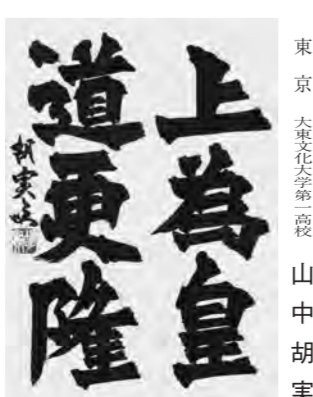 東京 大東文化大学第一高校 山中胡実
上為皇
道更隆
胡実臨